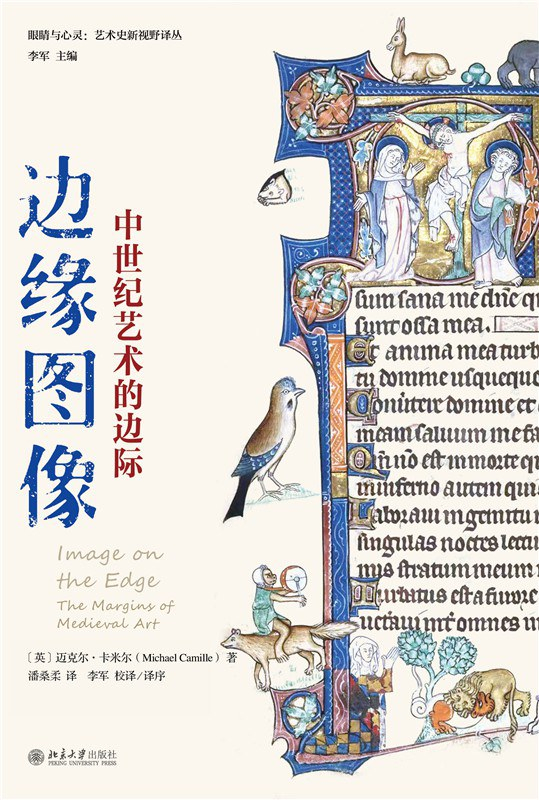 眼睛与心灵：艺术史新视野译丛
李军 主编
边缘图像
中世纪艺术的边际
Image on
the Edge
The Margins of
Medieval Art
［英］迈克尔·卡米尔（Michael Camille）著
潘桑柔 译 李军 校译/译序
北京大学出版社
PEKING UNIVERSITY PRESS
sum sana me dñe q
sunt ossa mea.
Et anima mea turb
tu domine usqueque
Conūtere domine et
meam saluum me fa
Qm̄ nō est in morte q
in inferno autem qui
Laboraui in gemitu
singulas noctes lectu
mis stratum meum
Turbatus est a furore
omnes in